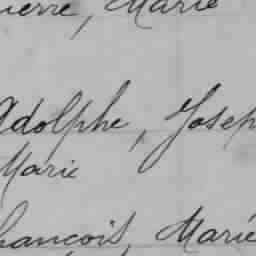 ierre, Marie
Adolphe, Josep
Marie
François, Marie